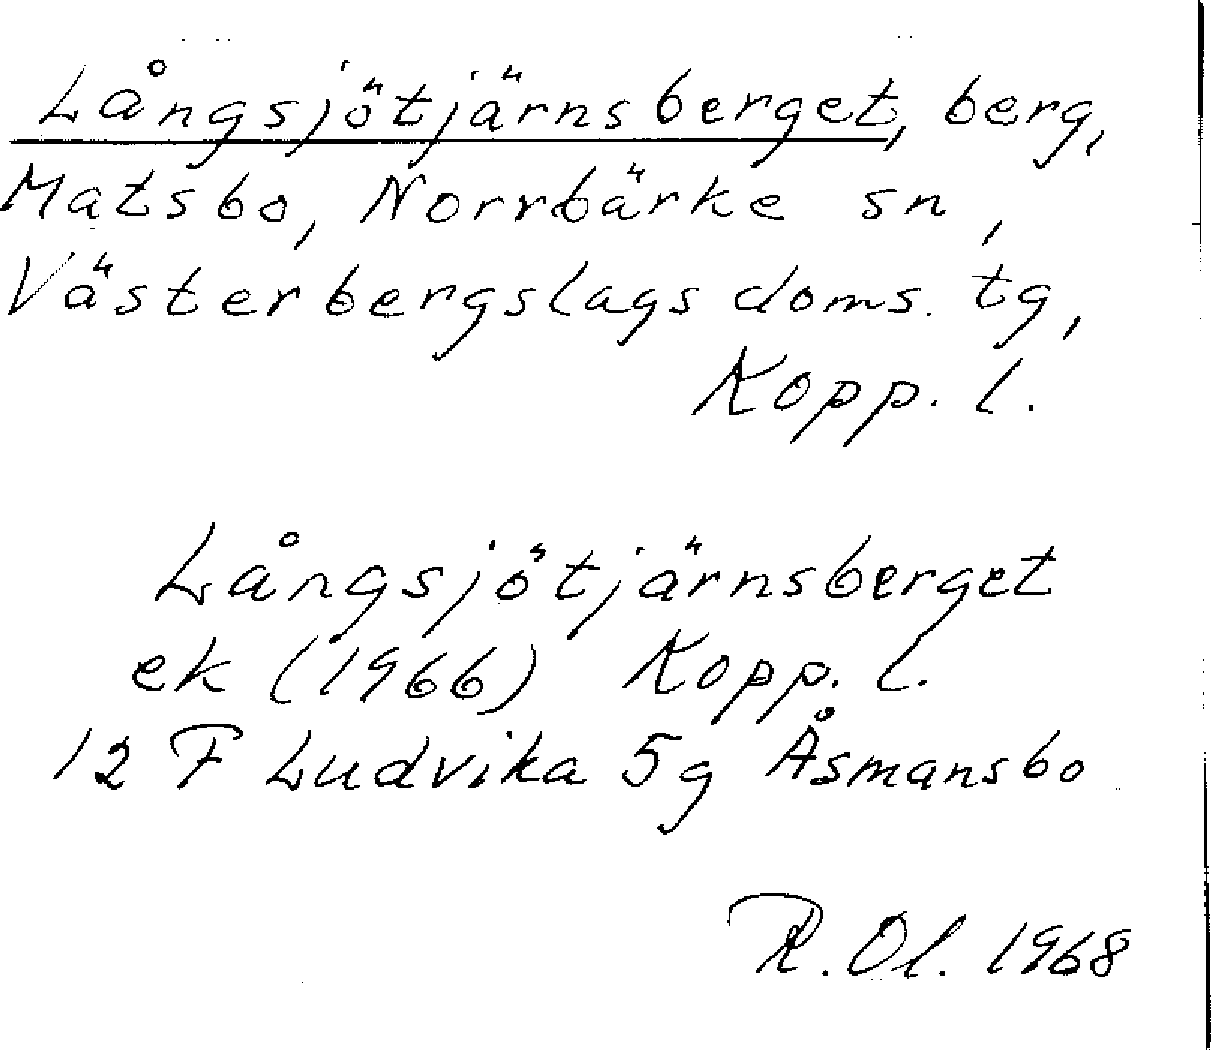 Långsjötjärnsberget, berg,
Matsbo, Norrbärke sn,
Västerbergslags doms. tg,
Kopp. l.
Långsjötjärnsberget
ek (1966) Kopp. l.
12 F Ludvika 5g Åsmansbo
R. Ol. 1968